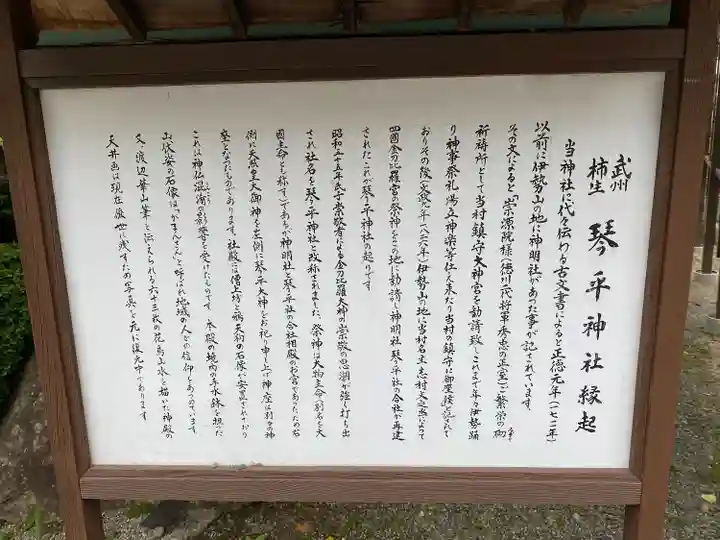 武州
柿生 琴平神社縁起
当神社に代々伝わる古文書によると正徳元年(一七一一年)
以前に伊勢山の地に神明社があった事が記されています。
その文によると「崇源院様(徳川二代将軍秀忠の正室)ご繁栄の砌
祈祷所として当村鎮守大神宮を勧請致し、これまで年々伊勢踊
り神事祭礼湯立神楽等仕り来たり当村の鎮守に御座候」と記されて
おりその後(文政九年・一八二六年)伊勢山地に当村名主志村文之丞によって
四國金刀比羅宮の祭神がこの地に勧請し神明社、琴平社の合社が再建
されたこれが琴平神社の起りです。
昭和三十五年氏子崇敬者による金刀比羅大神の崇敬の思潮が強く打ち出
され社名を琴平神社と改称されました。祭神は大物主命(別名を大
國主命とも称す)であるが神明社と琴平社の合社相殿のお宮であったため右
側に天照皇大御神を左側に琴平大神をお祀り申し上げ神座は別々の神
座となったものであります。社殿には僧上坊と鴉天狗の石像が安置されており
これは神仏混淆の影響を受けたものです。本殿の境内の手水鉢を担った
山伏姿の石像は「がまんさん」と呼ばれ地域の人々の信仰をあつめています。
又、渡辺崋山筆と伝えられる六十三枚の花鳥山水を描いた神殿の
天井画は現在後世に残すため写真を元に復元中であります